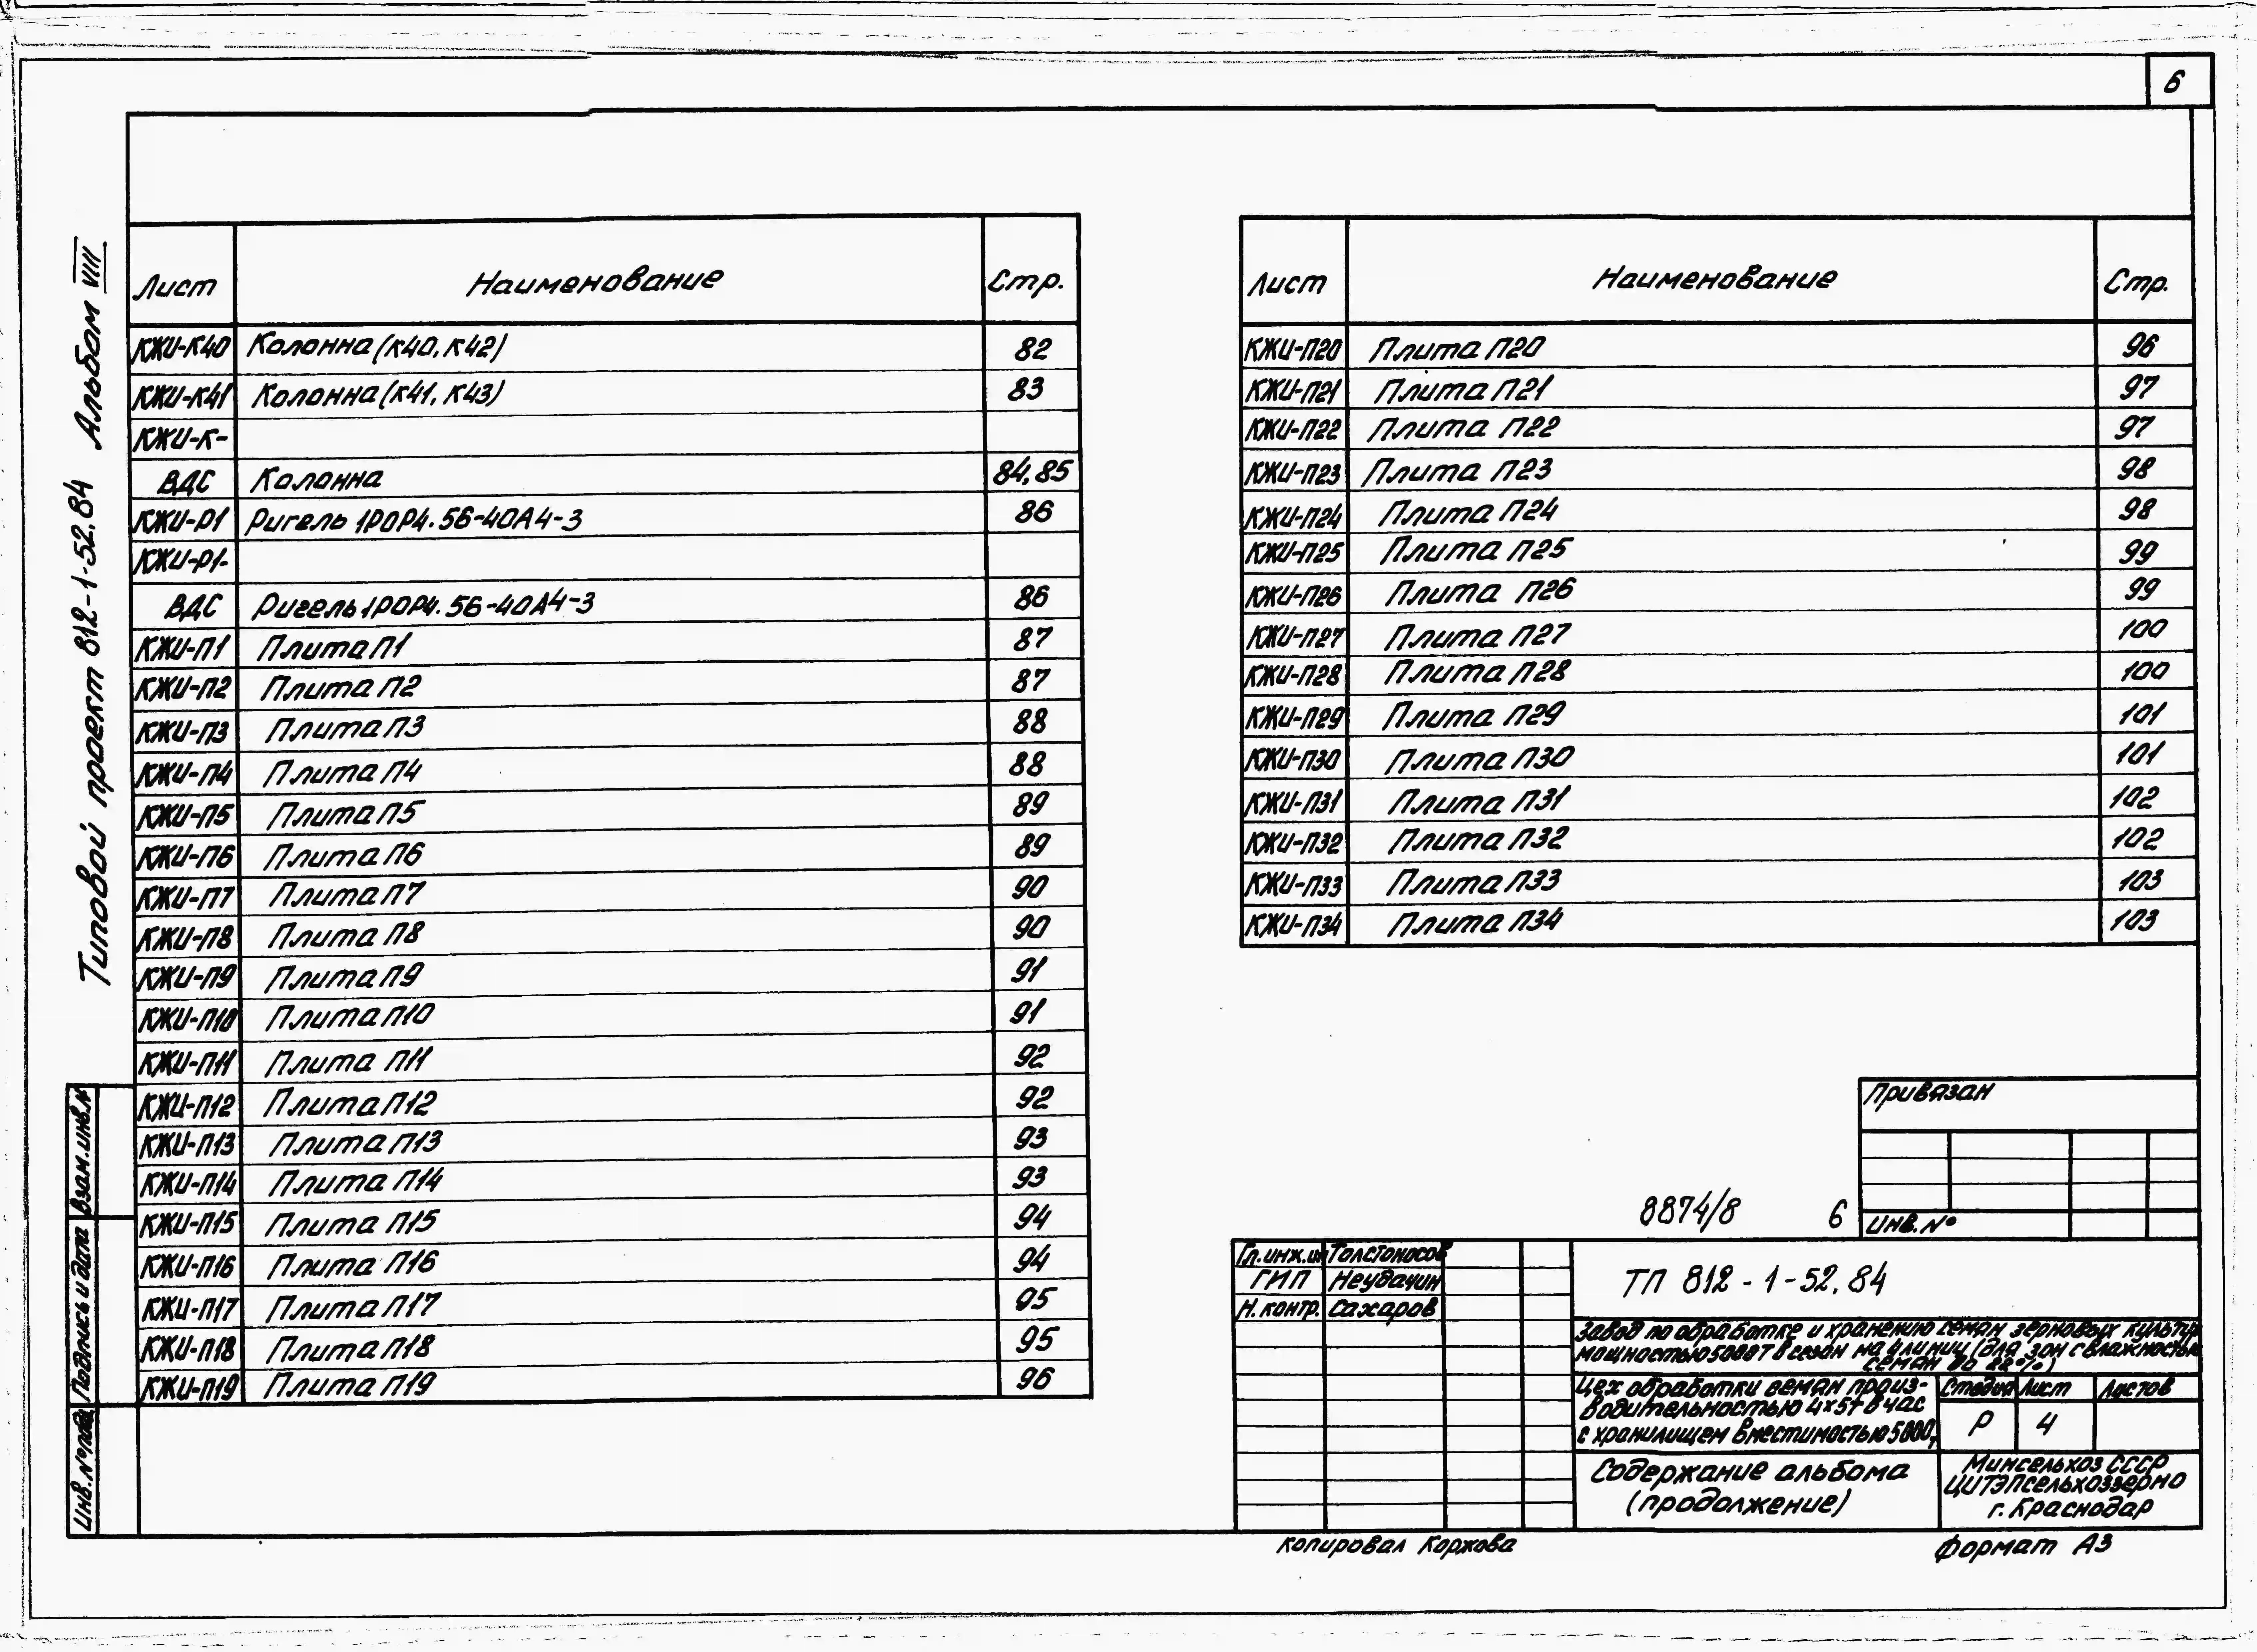 6
Типовой проект 812-1-52.84 Альбом VIII
Лист Наименование Стр.
КЖИ-К40 Колонна (К40, К42) 82
КЖИ-К41 Колонна (К41, К43) 83
КЖИ-К-
ВДС Колонна 84,85
КЖИ-Р1 Ригель 1РОР4.56-40А4-3 86
КЖИ-Р1-
ВДС Ригель 1РОР4.56-40А4-3 86
КЖИ-П1 Плита П1 87
КЖИ-П2 Плита П2 87
КЖИ-П3 Плита П3 88
КЖИ-П4 Плита П4 88
КЖИ-П5 Плита П5 89
КЖИ-П6 Плита П6 89
КЖИ-П7 Плита П7 90
КЖИ-П8 Плита П8 90
КЖИ-П9 Плита П9 91
КЖИ-П10 Плита П10 91
КЖИ-П11 Плита П11 92
КЖИ-П12 Плита П12 92
КЖИ-П13 Плита П13 93
КЖИ-П14 Плита П14 93
КЖИ-П15 Плита П15 94
КЖИ-П16 Плита П16 94
КЖИ-П17 Плита П17 95
КЖИ-П18 Плита П18 95
КЖИ-П19 Плита П19 96
Лист Наименование Стр.
КЖИ-П20 Плита П20 96
КЖИ-П21 Плита П21 97
КЖИ-П22 Плита П22 97
КЖИ-П23 Плита П23 98
КЖИ-П24 Плита П24 98
КЖИ-П25 Плита П25 99
КЖИ-П26 Плита П26 99
КЖИ-П27 Плита П27 100
КЖИ-П28 Плита П28 100
КЖИ-П29 Плита П29 101
КЖИ-П30 Плита П30 101
КЖИ-П31 Плита П31 102
КЖИ-П32 Плита П32 102
КЖИ-П33 Плита П33 103
КЖИ-П34 Плита П34 103
Взам.инв.№
Подпись и дата
Инв.№подл.
Привязан
Инв.№
8874/8 6
Гл.инж.ин Толстоносов
ГИП Неудачин
Н.контр. Сахаров
ТП 812-1-52.84
Завод по обработке и хранению семян зерновых культур
мощностью 5000т в сезон на 4 линии (для зон с влажностью
семян до 22%)
Цех обработки семян произ-
водительностью 4×5т в час
с хранилищем вместимостью 5000т
Стадия Лист Листов
Р 4
Содержание альбома
(продолжение)
Минсельхоз СССР
ЦИТЭПсельхоззерно
г. Краснодар
Копировал Коржова
Формат А3